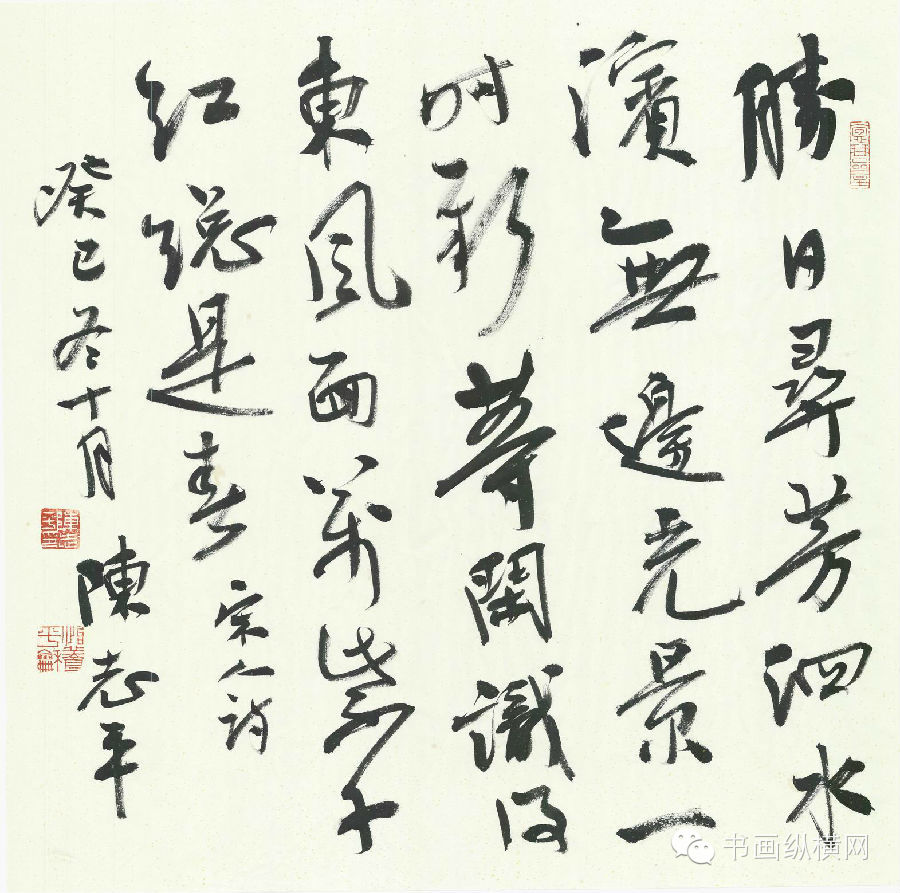 勝日尋芳泗水
濱無邊光景一
时新。等閑識得
東風面萬紫千
紅總是春
宋人詩
癸巳冬十月
陳志平
书画纵横网